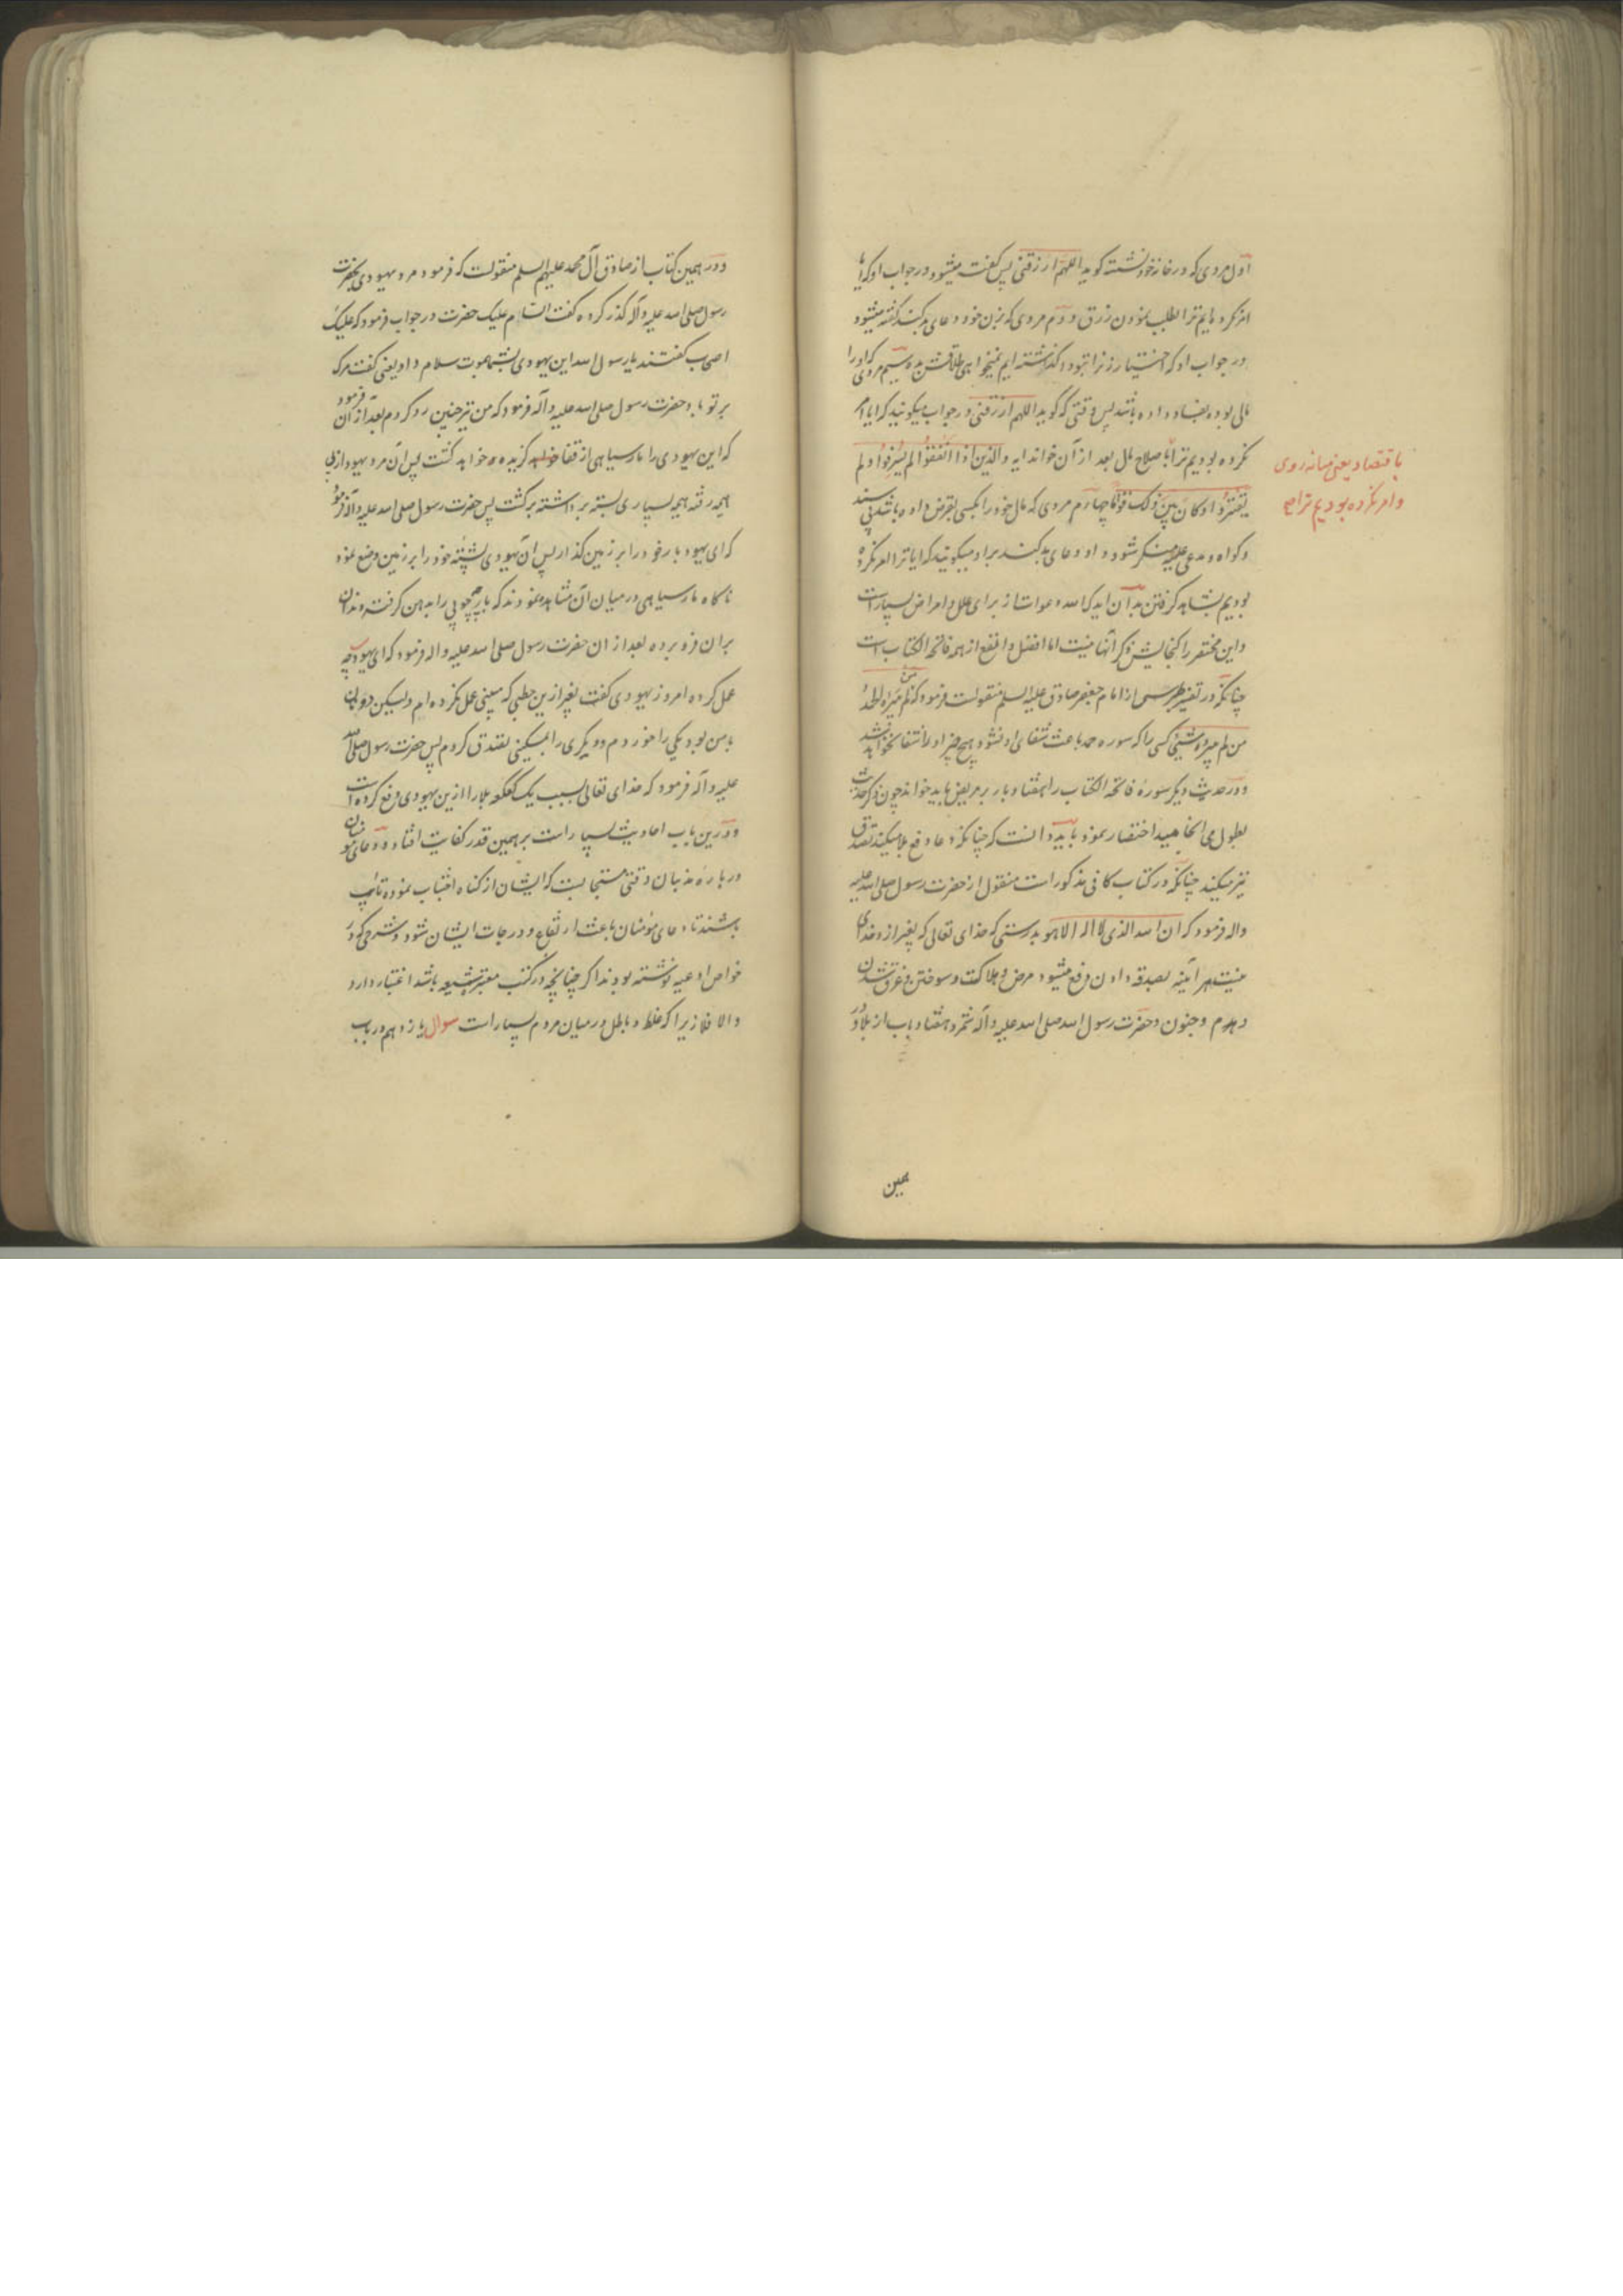 اول مردی که در خانه خود نشسته گوید اللهم ارزقنی پس گفته میشود در جواب او که ایا
امر نکرده ایم ترا بطلب نمودن رزق و دوم مردی که بزن خود دعای بد کند گفته میشود
در جواب او که اختیار زنرا بتو وا گذاشته ایم نمیخواهی طلاقش بده سیم مردی که او را
مالی بوده بفساد داده باشد پس وقتی که گوید اللهم ارزقنی در جواب میگویند که ایا امر
نکرده بودیم ترا باصلاح مال بعد از آن خواند ایه والذین اذا انفقوا لم یسرفوا و لم
یقتروا و کان بین ذلک قواما چهارم مردی که مال خود را بکسی بقرض داده باشد بی سند
و گواه و مدعی علیه منکر شود و او دعای بد کند براو میگویند که ایا ترا امر نکرده
بودیم بشاهد گرفتن بدآن ایدک الله دعوات از برای علل و امراض بسیار است
و این مختصر را گنجایش ذکر آنها نیست اما افضل و انفع از همه فاتحه الکتاب است
چنانکه در تفسیر طبرسی از امام جعفر صادق علیه السلم منقولست فرمود که من لم یبرأه الحمد
من لم یبرأه شیئ کسی را که سوره حمد باعث شفای او نشود هیچ چیز او را شفا نخواهد بخشید
و در حدیث دیگر سوره فاتحه الکتاب را هفتاد بار بر مریض باید خواند چون ذکر حدیث
بطول می انجامید اختصار نمود باید دانست که چنانکه دعا دفع بلا میکند تصدق
نیز میکند چنانکه در کتاب کافی مذکور است منقول از حضرت رسول صلی الله علیه
واله فرمود که ان الله الذی لا اله الا هو بدرستی که خدای تعالی که بغیر از و خدای
نیست هر آینه بصدقه دادن دفع میشود مرض و هلاکت و سوختن و غرق شدن
و هدم و جنون و حضرت رسول الله صلی الله علیه وآله شمرد هفتاد باب از بلا و در
همین
باقتصاد یعنی میانه روی
و امر نکرده بودیم ترا
و در همین کتاب از صادق آل محمد علیهم السلم منقولست که فرمود مرد یهودی بحضرت
رسول صلی الله علیه وآله گذر کرده گفت السام علیک حضرت در جواب فرمود که علیک
اصحاب گفتند یا رسول الله این یهودی بشما بموت سلام داد یعنی گفت مرگ
بر تو باد حضرت رسول صلی الله علیه وآله فرمود که من نیز چنین رد کردم بعد از آن فرمود
که این یهودی را مار سیاهی از قفا گزیده خواهد کشت پس آن مرد یهود از پی
هیمه رفته هیمه بسیاری بسته برداشته برگشت پس حضرت رسول صلی الله علیه وآله فرمود
که ای یهود بار خود را بر زمین گذار پس آن یهودی پشته خود را بر زمین وضع نمود
ناگاه مار سیاهی در میان آن مشاهده نمودند که پارچه چوبی را بدهن گرفته دندان
بر ان فرو برده بعد از ان حضرت رسول صلی الله علیه واله فرمود که ای یهود چه
عمل کرده امروز یهودی گفت بغیر ازین حطبی که می بینی عمل نکرده ام ولیکن دو نان
با من بود یکی را خوردم و دیگری را بمسکینی تصدق کردم پس حضرت رسول صلی الله
علیه وآله فرمود که خدای تعالی بسبب یک کعکه بلا را ازین یهودی دفع کرده است
و درین باب احادیث بسیار است بر همین قدر کفایت افتاد و دعای مؤمنان
در باره مذنبان وقتی مستجابست که ایشان از گناه اجتناب نموده تائب
باشند تا دعای مؤمنان باعث ارتفاع درجات ایشان شود و شرحی که در
خواص ادعیه نوشته بودند اگر چنانچه در کتب معتبر شیعه باشد اعتبار دارد
والا فلا زیرا که غلط و باطل در میان مردم بسیار است سوال یازدهم در باب